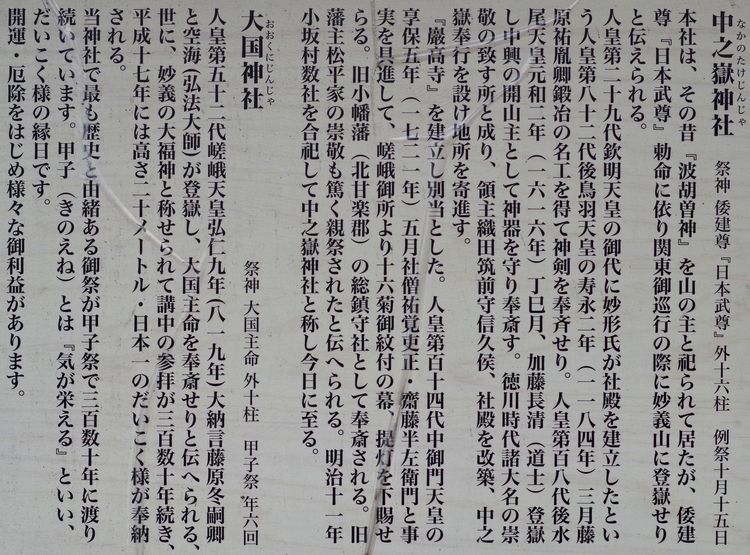 中之嶽神社 祭神 倭建尊『日本武尊』外十六柱 例祭十月十五日
なかのたけじんじゃ
本社は、その昔『波胡曽神』を山の主と祀られて居たが、倭建
尊『日本武尊』勅命に依り関東御巡行の際に妙義山に登嶽せり
と伝えられる。
人皇第二十九代欽明天皇の御代に妙形氏が社殿を建立したとい
う人皇第八十二代後鳥羽天皇の寿永二年（一一八四年）三月藤
原祐胤卿鍛冶の名工を得て神剣を奉斉せり。人皇第百八代後水
尾天皇元和二年（一六一六年）丁巳月、加藤長清（道士）登嶽
し中興の開山主として神器を守り奉斎す。徳川時代諸大名の崇
敬の致す所と成り、領主織田筑前守信久侯、社殿を改築、中之
嶽奉行を設け地所を寄進す。
『巌高寺』を建立し別当とした。人皇第百十四代中御門天皇の
享保五年（一七二一年）五月社僧祐覚吏正・齋藤半左衛門と事
実を具進して、嵯峨御所より十六菊御紋付の幕、提灯を下賜せ
らる。旧小幡藩（北甘楽郡）の総鎮守社として奉斎される。旧
藩主松平家の崇敬も篤く親祭されたと伝へられる。明治十一年
小坂村数社を合祀して中之嶽神社と称し今日に至る。
大国神社 祭神 大国主命 外十柱 甲子祭 年六回
おおくにじんじゃ
人皇第五十二代嵯峨天皇弘仁九年(八一九年)大納言藤原冬嗣卿
と空海(弘法大師)が登嶽し、大国主命を奉斎せりと伝へられる、
世に、妙義の大福神と称せられて講中の参拝が三百数十年続き、
平成十七年には高さ二十メートル・日本一のだいこく様が奉納
される。
当神社で最も歴史と由緒ある御祭が甲子祭で三百数十年に渡り
続いています。甲子（きのえね）とは『気が栄える』といい、
だいこく様の縁日です。
開運・厄除をはじめ様々な御利益があります。